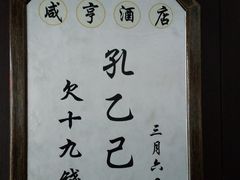 咸亨酒店
三月六
孔乙己
欠十九錢